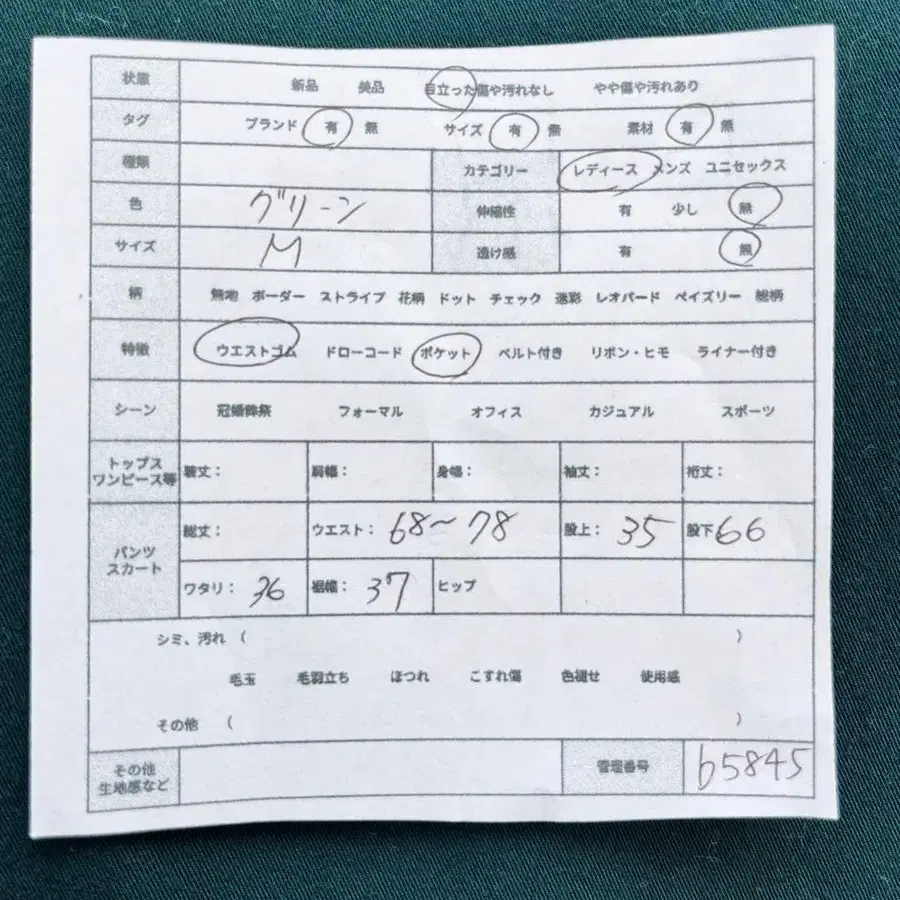 状態 新品 美品 目立った傷や汚れなし やや傷や汚れあり
タグ ブランド 有 無 サイズ 有 無 素材 有 無
種類 カテゴリー レディース メンズ ユニセックス
色 グリーン 伸縮性 有 少し 無
サイズ M 透け感 有 無
柄 無地 ボーダー ストライプ 花柄 ドット チェック 迷彩 レオパード ペイズリー 総柄
特徴 ウエストゴム ドローコード ポケット ベルト付き リボン・ヒモ ライナー付き
シーン 冠婚葬祭 フォーマル オフィス カジュアル スポーツ
トップス
ワンピース等 着丈： 肩幅： 身幅： 袖丈： 裄丈：
パンツ
スカート
総丈： ウエスト： 68〜78 股上： 35 股下 66
ワタリ： 36 裾幅： 37 ヒップ
シミ、汚れ （ ）
毛玉 毛羽立ち ほつれ こすれ傷 色褪せ 使用感
その他 （ ）
その他
生地感など 管理番号 b5845